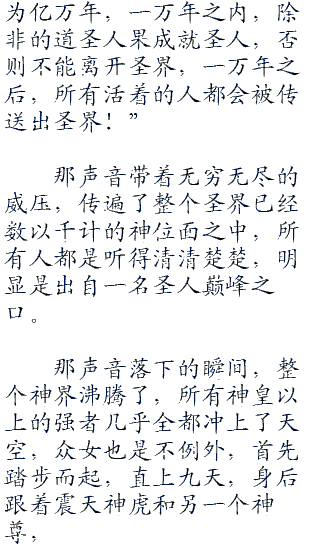 为亿万年，一万年之内，除
非的道圣人果成就圣人，否
则不能离开圣界，一万年之
后，所有活着的人都会被传
送出圣界！”
那声音带着无穷无尽的
威压，传遍了整个圣界已经
数以千计的神位面之中，所
有人都是听得清清楚楚，明
显是出自一名圣人巅峰之
口。
那声音落下的瞬间，整
个神界沸腾了，所有神皇以
上的强者几乎全都冲上了天
空，众女也是不例外，首先
踏步而起，直上九天，身后
跟着震天神虎和另一个神
尊，